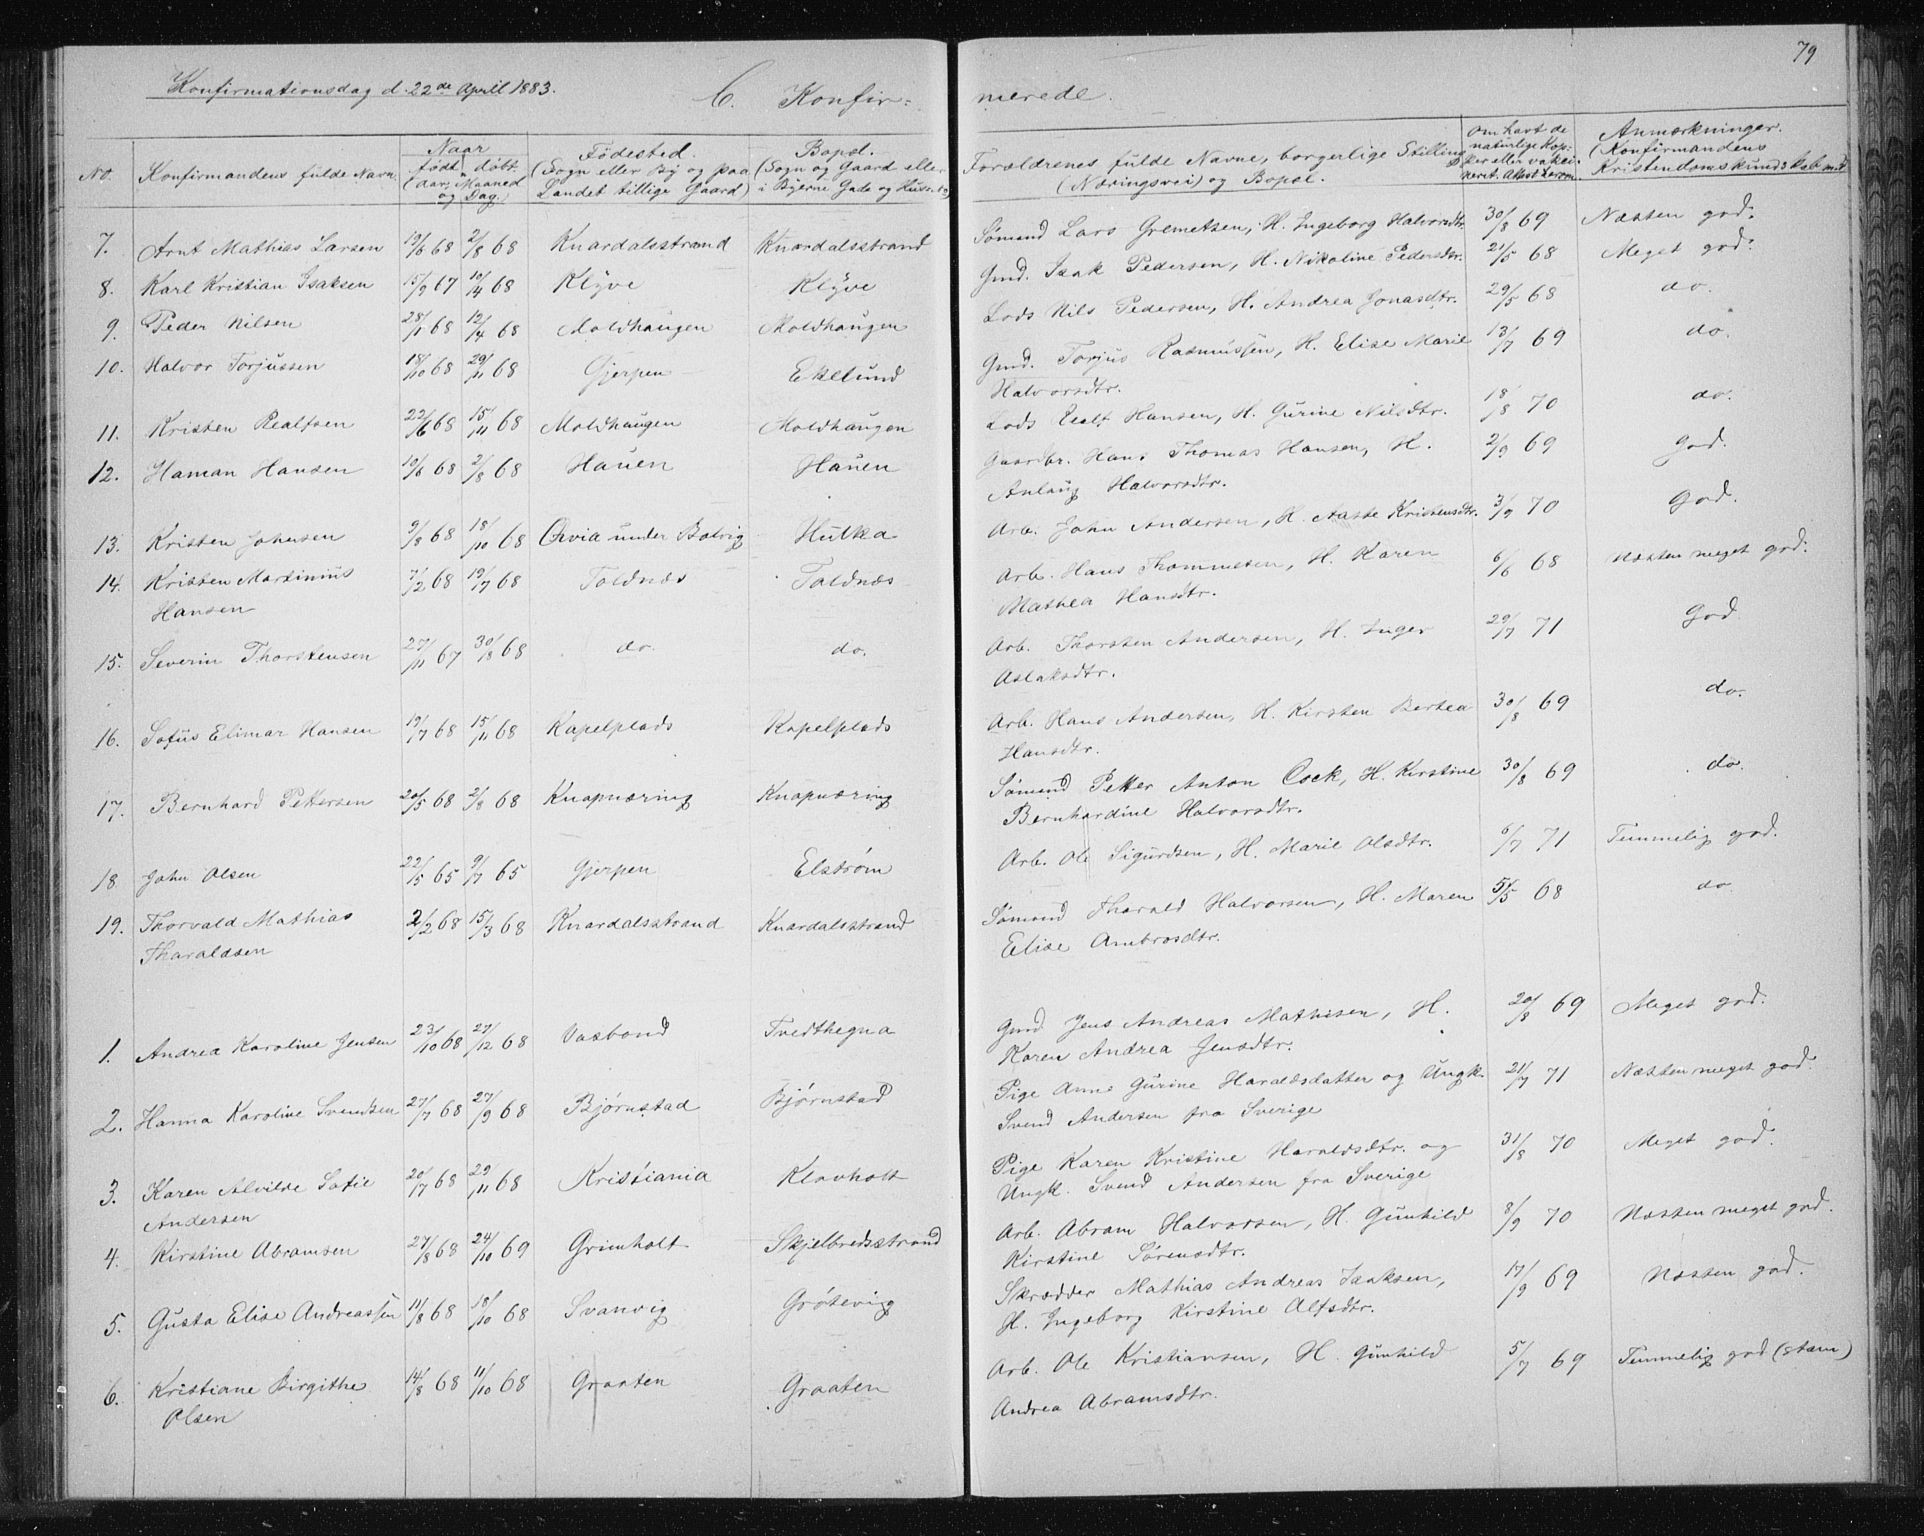 79
Konfirmationsdag d. 22de April 1883.
C. Konfir- merede.
No. Konfirmandens fulde Navn.
Naar født, døbt. (Aar, Maaned og Dag.)
Fødested. (Sogn eller By og paa Landet tillige Gaard)
Bopæl. (Sogn og Gaard eller i Byerne Gade og Huse
Forældrenes fulde Navne, borgerlige Stilling (Næringsvei) og Bopæl.
Om havt de naturlige Kopper eller vaccineret. Attest herom
Anmærkninger. (Konfirmandens Kristendomskundskab m.d
7. Arnt Mathias Larsen 19/6 68 2/8 68 Knardalsstrand Knardalsstrand Sømand Lars Gremetsen, H. Ingeborg Halvorsdtr. 30/8 69 Næsten god.
8. Karl Kristian Isaksen 15/9 67 10/4 68 Klyve Klyve Gmd. Isak Pedersen, H. Nikoline Pedersdtr. 21/5 68 Meget god.
9. Peder Nilsen 28/1 68 12/4 68 Moldhaugen Moldhaugen Lods Nils Pedersen, H. Andrea Jonasdtr. 29/5 68 do.
10. Halvor Torjussen 18/10 68 29/11 68 Gjerpen Eklund Gmd. Torjus Rasmussen, H. Elise Marie 13/7 69 do.
Halvorsdtr.
11. Kristen Realfsen 22/6 68 15/11 68 Moldhaugen Moldhaugen Lods Realf Hansen, H. Gurine Nilsdtr. 18/8 70 do.
12. Haman Hansen 19/6 68 2/8 68 Hauen Hauen Gaardbr. Hans Thomas Hansen, H. 2/9 69 God.
Anlaug Halvorsdtr.
13. Kristen Johnsen 9/8 68 18/10 68 Ørvia under Bolvig Hulka Arb. John Andersen, H. Aaste Kristensdtr. 3/9 70 God.
14. Kristen Martinius 7/2 68 19/7 68 Toldnæs Toldnæs Arb. Hans Thommesen, H. Karen 6/6 68 Næsten meget god.
Hansen Mathea Hansdtr.
15. Severin Thorstensen 27/11 67 30/8 68 do. do. Arb. Thorsten Andersen, H. Inger 29/7 71 God
Aslaksdtr.
16. Sofus Elimar Hansen 19/7 68 15/11 68 Kapelplads Kapelplads Arb. Hans Andersen, H. Kirsten Bertea 30/8 69 do.
Hansdtr.
17. Bernhard Pettersen 20/5 68 2/8 68 Knapnæring Knapnæring Sømand Petter Anton Cock, H. Kirstine 30/8 69 do.
Bernhardine Halvorsdtr.
18 John Olsen 22/5 65 9/7 65 Gjerpen Elstrøm Arb. Ole Sigurdsen, H. Marie Olsdtr. 6/7 71 Temmelig god.
19. Thorvald Mathias 2/2 68 15/3 68 Knardalsstrand Knardalsstrand Sømand Tharald Halvorsen, H. Maren 5/5 68 do
Tharaldsen Elise Ambrosdtr.
1. Andrea Karoline Jensen 23/10 68 27/12 68 Vaxbond Tvedthegna Gmd. Jens Andreas Mathisen, H. 20/8 69 Meget god.
Karen Andrea Jensdtr.
2. Hanna Karoline Svendsen 27/7 68 27/9 68 Bjørnstad Bjørnstad Pige Anne Gurine Haraldsdatter og Ungk. 21/7 71 Næsten meget god.
Svend Andersen fra Sverige
3. Karen Alvilde Sofie 20/7 68 29/11 68 Kristiania Klovholt Pige Karen Kristine Haraldsdtr. og 31/8 70 Meget god.
Andersen Ungk. Svend Andersen fra Sverige
4. Kirstine Abramsen 27/8 68 24/10 69 Grimholt Skjelbredsstrand Arb. Abram Halvorsen, H. Gunhild 8/9 70 Næsten meget god.
Kirstine Sørensdtr.
5. Gusta Elise Andreassen 11/8 68 18/10 68 Svanvig Grøtevig Skrædder Mathias Andreas Isaksen, 17/9 69 Næsten god.
H. Ingeborg Kirstine Alfsdtr.
6. Kristiane Birgithe 14/8 68 11/10 68 Graaten Graaten Arb. Ole Kristiansen, H. Gunhild 5/7 69 Temmelig god (stam)
Olsen Andrea Abramsdtr.